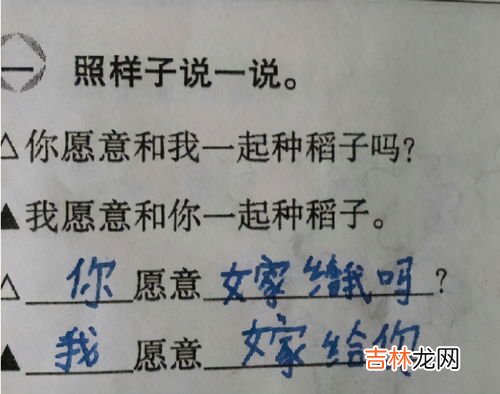 一 照样子说一说。
△你愿意和我一起种稻子吗?
▲我愿意和你一起种稻子。
△ 你 愿意 嫁给我吗 ?
▲ 我 愿意 嫁给你
吉林龙网